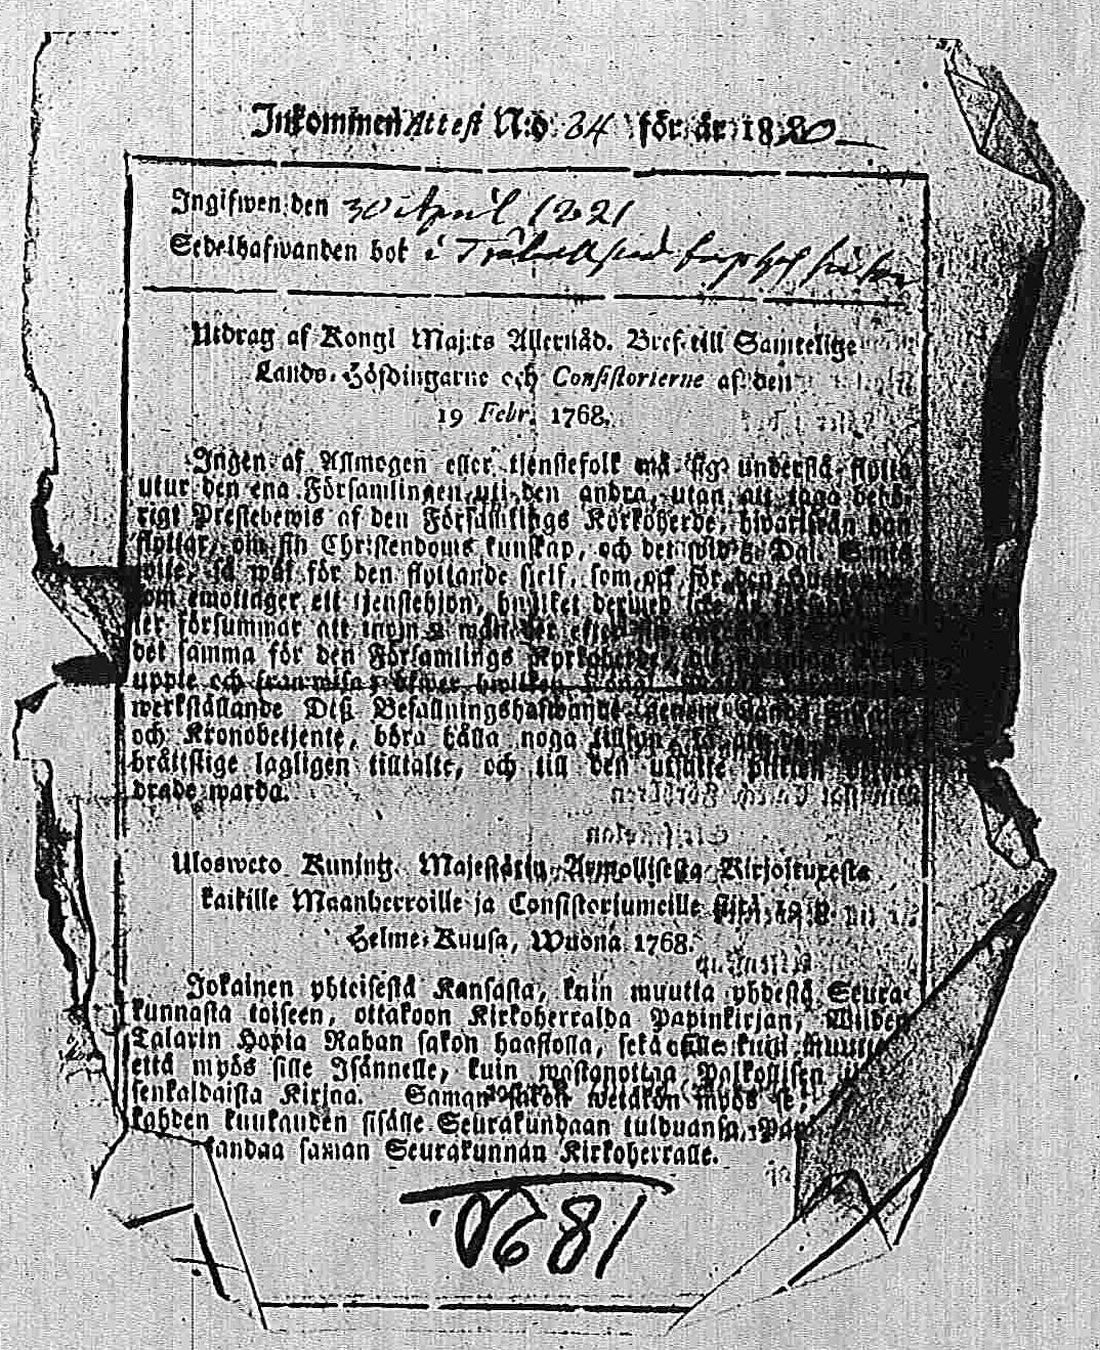 Inkommen Attest N:o 34 för år 1820
Ingifwen den 30 April 1821
Sedelhafwanden bor i
Utdrag af Kongl Maj:ts Allernåd. Bref till Samtelige
Lands-Höfdingarne och Consistorierne af den
19 Febr. 1768.
Ingen af Allmogen eller tienstefolk må sig understå flytta
utur den ena Församlingen uti den andra, utan att taga behö-
rigt Prestebewis af den Församlings Körkoherde, hwarifrån han
flyttar, om sin Christendoms kunskap, och det wid 3 Dal. Smts
wite, så wäl för den flyttande sielf, som ock för den
som emottager ett tjenstehion, hwilket derwed icke är
ler försummar att inom 2 månader efter
det samma för den Församlings Kyrkoherde,
uppte och framwisa; öfwer hwilken
werkställande Deß Befallningshafwande genom Lands
och Kronobetjente, böra hålla noga tillsyn,
bråttslige lagligen tilltalte, och till den utsatte plikten
drade warda.
Ulosweto Kuning. Majestätin Armollisesta Kirjoituxesta
kaikille Maanherroille ja Consistoriumeille siitä 19 p.
Helme-Kuusa, Wuona 1768.
Jokainen yhteisestä Kansasta, kuin muutta yhdestä Seura-
kunnasta toiseen, ottakoon Kirkoherralda Papinkirjan, Wiiden
Talarin Hopia Rahan sakon haastolla, sekä sille kuin muutta
että myös sille Isännelle, kuin wastanottaa Palkollisen
senkaldaista Kirjaa. Saman sakon wetäkön myös se,
kahden kuukauden sisälle Seurakundaan tulduansa, Pap
andaa saman Seurakunnan Kirkoherralle.
1820.